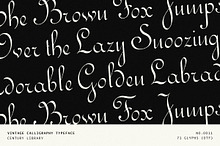 The Brown Fox Jumps
Over the Lazy Snoozing
Adorable Golden Labrad
The Brown Fox Jumps
VINTAGE CALLIGRAPHY TYPEFACE
CENTURY LIBRARY
NO.0031
71 GLYPHS (OTF)